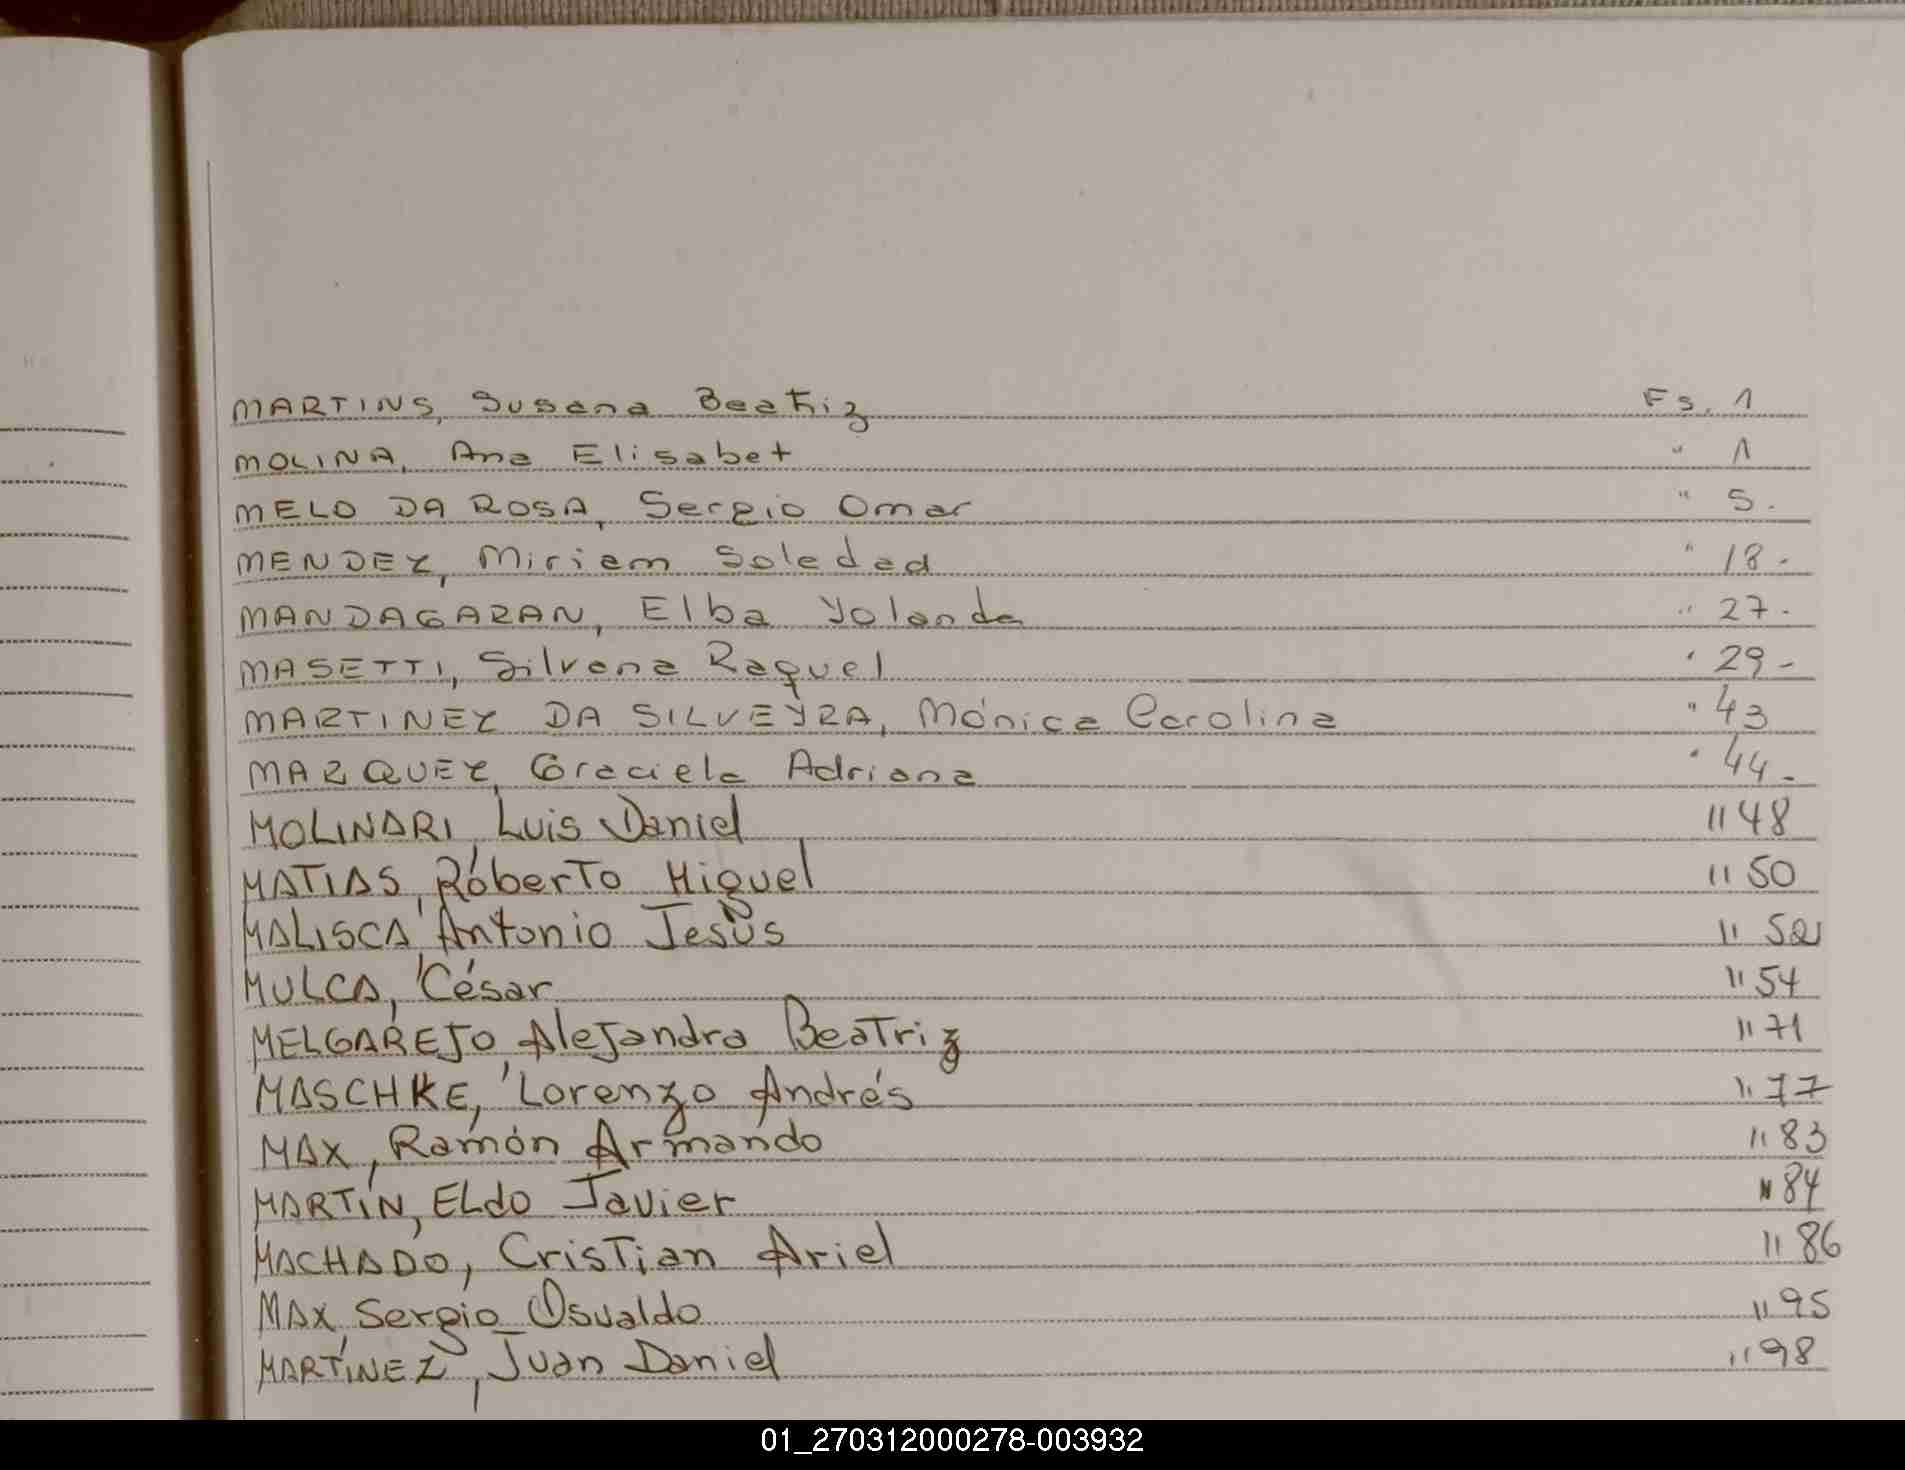 MARTINS, Susana Beatriz Fs. 1
MOLINA, Ana Elisabet " 1
MELO DA ROSA, Sergio Omar " 5.
MENDEZ, Miriam Soledad " 18-
MANDAGARAN, Elba Yolanda " 27-
MASETTI, Silvana Raquel " 29-
MARTINEZ DA SILVEYRA, Mónica Carolina " 43
MARQUEZ, Graciela Adriana " 44-
MOLINARI, Luis Daniel " 48
MATIAS, Roberto Miguel " 50
MALISCA, Antonio Jesús " 52
MULCA, César " 54
MELGAREJO, Alejandra Beatriz " 71
MASCHKE, Lorenzo Andrés " 77
MAX, Ramón Armando " 83
MARTÍN, Eldo Javier " 84
MACHADO, Cristian Ariel " 86
MAX, Sergio Osvaldo " 95
MARTÍNEZ, Juan Daniel " 98
01_270312000278-003932